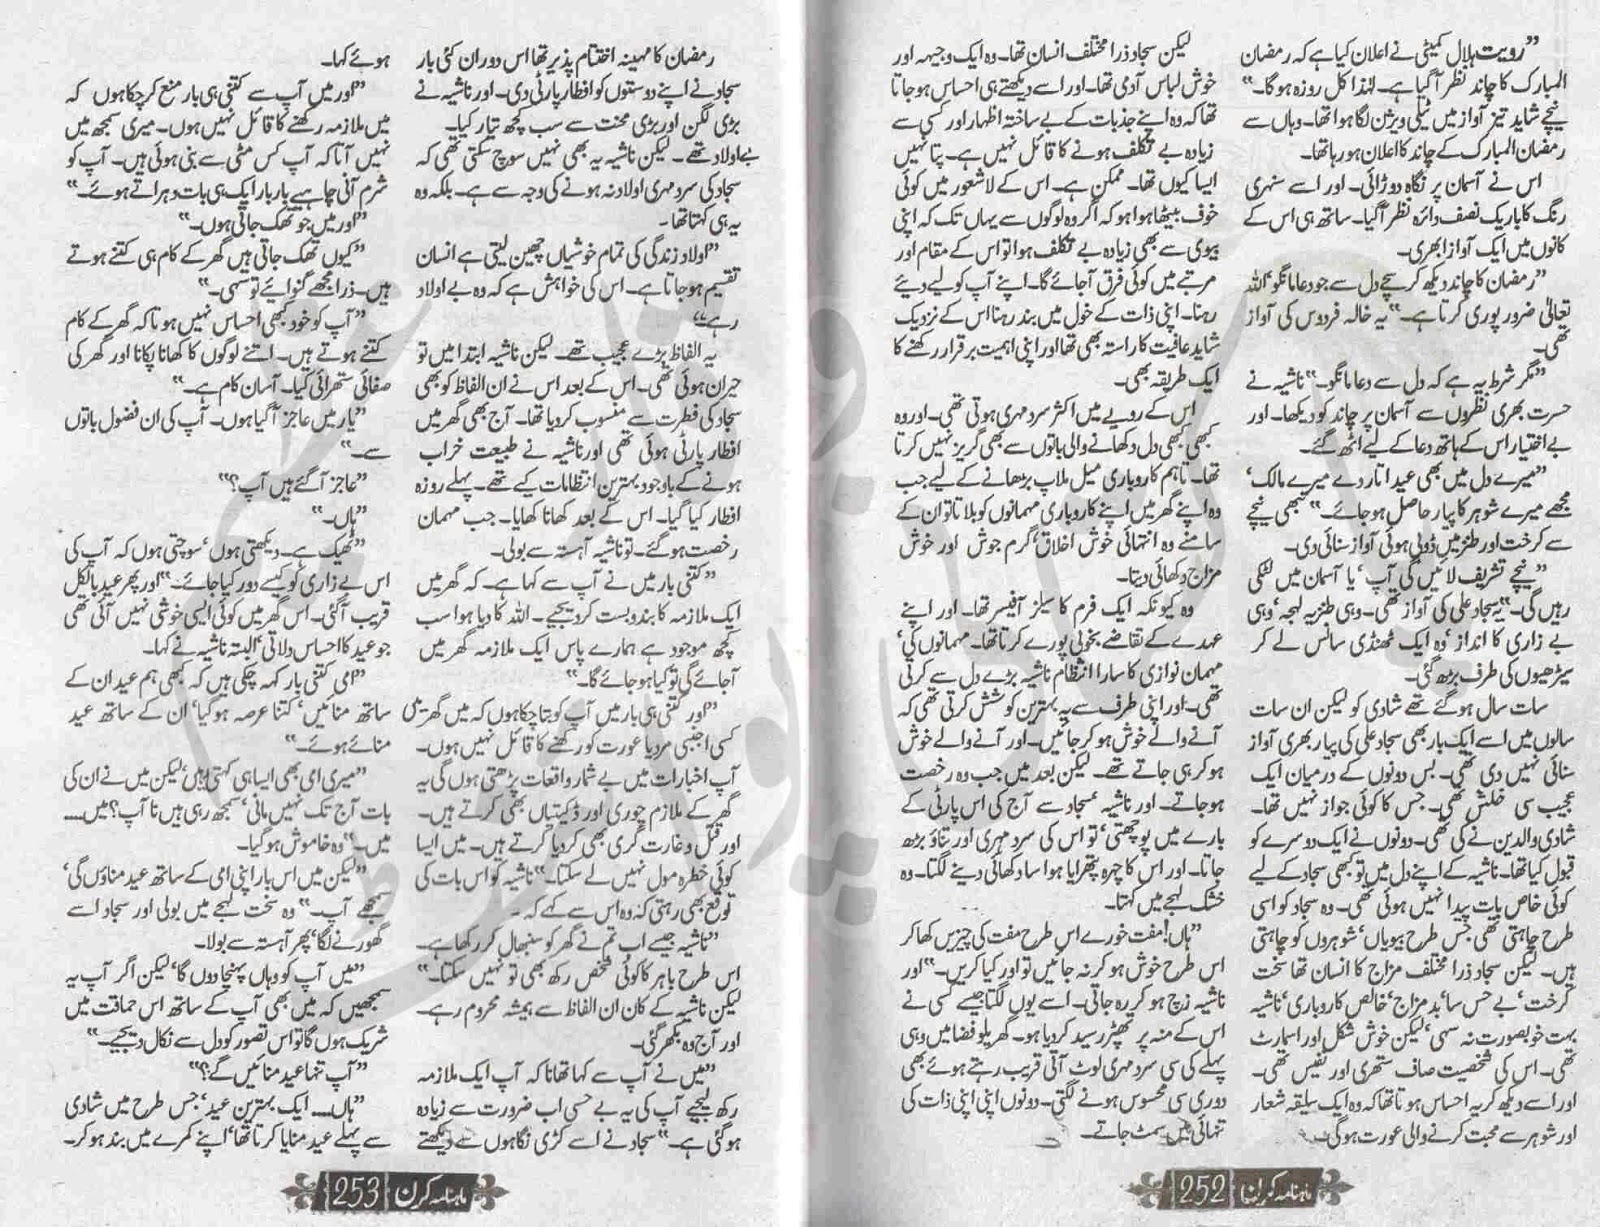 ”رویت ہلال کمیٹی نے اعلان کیا ہے کہ رمضان
المبارک کا چاند نظر آگیا ہے۔ لہٰذا کل روزہ ہوگا۔“
نیچے شاید تیز آواز میں ٹیلی ویژن لگا ہوا تھا۔ وہاں سے
رمضان المبارک کے چاند کا اعلان ہو رہا تھا۔
اس نے آسمان پر نگاہ دوڑائی۔ اور اسے سنہری
رنگ کا باریک نصف دائرہ نظر آگیا۔ ساتھ ہی اس کے
کانوں میں ایک آواز ابھری۔
”رمضان کا چاند دیکھ کر سچے دل سے جو دعا مانگو‘ اللہ
تعالیٰ ضرور پوری کرتا ہے۔“ یہ خالہ فردوس کی آواز
تھی۔
”مگر شرط یہ ہے کہ دل سے دعا مانگو۔“ ناشیہ نے
حسرت بھری نظروں سے آسمان پر چاند کو دیکھا۔ اور
بے اختیار اس کے ہاتھ دعا کے لیے اٹھ گئے۔
”میرے دل میں بھی عید اتار دے میرے مالک‘
مجھے میرے شوہر کا پیار حاصل ہو جائے۔“ تبھی نیچے
سے کرخت اور طنز میں ڈوبی ہوئی آواز سنائی دی۔
”نیچے تشریف لائیں گی آپ‘ یا آسمان میں لٹکی
رہیں گی۔“ یہ سجاد علی کی آواز تھی۔ وہی طنزیہ لہجہ‘ وہی
بے زاری کا انداز‘ وہ ایک ٹھنڈی سانس لے کر
سیڑھیوں کی طرف بڑھ گئی۔
سات سال ہو گئے تھے شادی کو لیکن ان سات
سالوں میں اسے ایک بار بھی سجاد علی کی پیار بھری آواز
سنائی نہیں دی تھی۔ بس دونوں کے درمیان ایک
عجیب سی خلش تھی۔ جس کا کوئی جواز نہیں تھا۔
شادی والدین نے کی تھی۔ دونوں نے ایک دوسرے کو
قبول کیا تھا۔ ناشیہ کے اپنے دل میں تو کبھی سجاد کے لیے
کوئی خاص بات پیدا نہیں ہوئی تھی۔ وہ سجاد کو اسی
طرح چاہتی تھی جس طرح بیویاں‘ شوہروں کو چاہتی
ہیں۔ لیکن سجاد ذرا مختلف مزاج کا انسان تھا سخت
کرخت‘ بے حس سا‘ بد مزاج‘ خالص کاروباری‘ ناشیہ
بہت خوبصورت نہ سہی‘ لیکن خوش شکل اور اسمارٹ
تھی۔ اس کی شخصیت صاف ستھری اور نفیس تھی۔
اور اسے دیکھ کر یہ احساس ہوتا تھا کہ وہ ایک سلیقہ شعار
اور شوہر سے محبت کرنے والی عورت ہوگی۔
لیکن سجاد ذرا مختلف انسان تھا۔ وہ ایک وجیہہ اور
خوش لباس آدمی تھا۔ اور اسے دیکھتے ہی احساس ہو جاتا
تھا کہ وہ اپنے جذبات کے بے ساختہ اظہار اور کسی سے
زیادہ بے تکلف ہونے کا قائل نہیں ہے۔ پتا نہیں
ایسا کیوں تھا۔ ممکن ہے۔ اس کے لاشعور میں کوئی
خوف بیٹھا ہوا ہو کہ اگر وہ لوگوں سے یہاں تک کہ اپنی
بیوی سے بھی زیادہ بے تکلف ہوا تو اس کے مقام اور
مرتبے میں کوئی فرق آجائے گا۔ اپنے آپ کو لیے دیے
رہنا۔ اپنی ذات کے خول میں بند رہنا اس کے نزدیک
شاید عافیت کا راستہ بھی تھا اور اپنی اہمیت برقرار رکھنے کا
ایک طریقہ بھی۔
اس کے رویے میں اکثر سرد مہری ہوتی تھی۔ اور وہ
کبھی کبھی دل دکھانے والی باتوں سے بھی گریز نہیں کرتا
تھا۔ تاہم کاروباری میل ملاپ بڑھانے کے لیے جب
وہ اپنے گھر میں اپنے کاروباری مہمانوں کو بلاتا تو ان کے
سامنے وہ انتہائی خوش اخلاق‘ گرم جوش اور خوش
مزاج دکھائی دیتا۔
وہ کیونکہ ایک فرم کا سیلز آفیسر تھا۔ اور اپنے
عہدے کے تقاضے بخوبی پورے کرتا تھا۔ مہمانوں کی‘
مہمان نوازی کا سارا انتظام ناشیہ بڑے دل سے کرتی
تھی۔ اور اپنی طرف سے یہ بہترین کوشش کرتی تھی کہ
آنے والے خوش ہو کر جائیں۔ اور آنے والے خوش
ہو کر ہی جاتے تھے۔ لیکن بعد میں جب وہ رخصت
ہو جاتے۔ اور ناشیہ‘ سجاد سے آج کی اس پارٹی کے
بارے میں پوچھتی‘ تو اس کی سرد مہری اور تناؤ بڑھ
جاتا۔ اور اس کا چہرہ پتھرایا ہوا سا دکھائی دینے لگتا۔ وہ
خشک لہجے میں کہتا۔
”ہاں! مفت خورے اس طرح مفت کی چیزیں کھا کر
اس طرح خوش ہو کر نہ جائیں تو اور کیا کریں۔“ اور
ناشیہ زچ ہو کر رہ جاتی۔ اسے یوں لگتا جیسے کسی نے
اس کے منہ پر تھپڑ رسید کر دیا ہو۔ گھریلو فضا میں وہی
پہلے کی سی سرد مہری لوٹ آتی قریب رہتے ہوئے بھی
دوری سی محسوس ہونے لگتی۔ دونوں اپنی اپنی ذات کی
تنہائی میں سمٹ جاتے۔
ماہنامہ کرن 252
رمضان کا مہینہ اختتام پذیر تھا اس دوران کئی بار
سجاد نے اپنے دوستوں کو افطار پارٹی دی۔ اور ناشیہ نے
بڑی لگن اور بڑی محنت سے سب کچھ تیار کیا۔
بے اولاد تھے۔ لیکن ناشیہ یہ بھی نہیں سوچ سکتی تھی کہ
سجاد کی سرد مہری اولاد نہ ہونے کی وجہ سے ہے۔ بلکہ وہ
یہ ہی کہتا تھا۔
”اولاد زندگی کی تمام خوشیاں چھین لیتی ہے انسان
تقسیم ہو جاتا ہے۔ اس کی خواہش ہے کہ وہ بے اولاد
رہے“
یہ الفاظ بڑے عجیب تھے۔ لیکن ناشیہ ابتدا میں تو
حیران ہوئی تھی۔ اس کے بعد اس نے ان الفاظ کو بھی
سجاد کی فطرت سے منسوب کر دیا تھا۔ آج بھی گھر میں
افطار پارٹی ہوئی تھی اور ناشیہ نے طبیعت خراب
ہونے کے باوجود بہترین انتظامات کیے تھے۔ پہلے روزہ
افطار کیا گیا۔ اس کے بعد کھانا کھایا۔ جب مہمان
رخصت ہو گئے۔ تو ناشیہ آہستہ سے بولی۔
”کتنی بار میں نے آپ سے کہا ہے۔ کہ گھر میں
ایک ملازمہ کا بندوبست کر دیجیے۔ اللہ کا دیا ہوا سب
کچھ موجود ہے ہمارے پاس ایک ملازمہ گھر میں
آجائے گی تو کیا ہو جائے گا۔“
”اور کتنی ہی بار میں آپ کو بتا چکا ہوں کہ میں گھر میں
کسی اجنبی مرد یا عورت کو رکھنے کا قائل نہیں ہوں۔
آپ اخبارات میں بے شمار واقعات پڑھتی ہوں گی یہ
گھر کے ملازم چوری اور ڈکیتیاں بھی کرتے ہیں۔
اور قتل و غارت گری بھی کر دیا کرتے ہیں۔ میں ایسا
کوئی خطرہ مول نہیں لے سکتا۔“ ناشیہ کو اس بات کی
توقع بھی رہتی کہ وہ اس سے کہے کہ۔
”ناشیہ جیسے اب تم نے گھر کو سنبھال کر رکھا ہے۔
اس طرح باہر کا کوئی شخص رکھ بھی تو نہیں سکتا۔“
لیکن ناشیہ کے کان ان الفاظ سے ہمیشہ محروم رہے۔
اور آج وہ بکھر گئی۔
”میں نے آپ سے کہا تھا نا کہ آپ ایک ملازمہ
رکھ لیجیے آپ کی یہ بے حسی اب ضرورت سے زیادہ
ہوگئی ہے۔“ سجاد نے اسے کڑی نگاہوں سے دیکھتے
ہوئے کہا۔
”اور میں آپ سے کتنی ہی بار منع کر چکا ہوں کہ
میں ملازمہ رکھنے کا قائل نہیں ہوں۔ میری سمجھ میں
نہیں آتا کہ آپ کس مٹی سے بنی ہوئی ہیں۔ آپ کو
شرم آنی چاہیے بار بار ایک ہی بات دہراتے ہوئے۔“
”اور میں جو تھک جاتی ہوں۔“
”کیوں تھک جاتی ہیں گھر کے کام ہی کتنے ہوتے
ہیں۔ ذرا مجھے گنوائیے تو سہی۔“
”آپ کو خود کبھی احساس نہیں ہوتا کہ گھر کے کام
کتنے ہوتے ہیں۔ اتنے لوگوں کا کھانا پکانا اور گھر کی
صفائی ستھرائی کیا۔ آسان کام ہے۔“
”یار میں عاجز آگیا ہوں۔ آپ کی ان فضول باتوں
سے۔“
”عاجز آگئے ہیں آپ؟“
”ہاں۔“
”ٹھیک ہے۔ دیکھتی ہوں‘ سوچتی ہوں کہ آپ کی
اس بے زاری کو کیسے دور کیا جائے۔“ اور پھر عید بالکل
قریب آگئی۔ اس گھر میں کوئی ایسی خوشی نہیں آئی تھی
جو عید کا احساس دلاتی‘ البتہ ناشیہ نے کہا۔
”امی کتنی بار کہہ چکی ہیں کہ کبھی ہم عید ان کے
ساتھ منائیں‘ کتنا عرصہ ہوگیا‘ ان کے ساتھ عید
منائے ہوئے۔“
”میری امی بھی ایسا ہی کہتی ہیں‘ لیکن میں نے ان کی
بات آج تک نہیں مانی‘ سمجھ رہی ہیں نا آپ؟ میں....
میں۔“ وہ خاموش ہوگیا۔
”لیکن میں اس بار اپنی امی کے ساتھ عید مناؤں گی‘
سمجھے آپ۔“ وہ سخت لہجے میں بولی اور سجاد اسے
گھورنے لگا‘ پھر آہستہ سے بولا۔
”میں آپ کو وہاں پہنچا دوں گا‘ لیکن اگر آپ یہ
سمجھیں کہ میں بھی آپ کے ساتھ اس حماقت میں
شریک ہوں گا تو اس تصور کو دل سے نکال دیجیے۔“
”آپ تنہا عید منائیں گے؟“
”ہاں.... ایک بہترین عید‘ جس طرح میں شادی
سے پہلے عید منایا کرتا تھا‘ اپنے کمرے میں بند ہو کر۔
ماہنامہ کرن 253